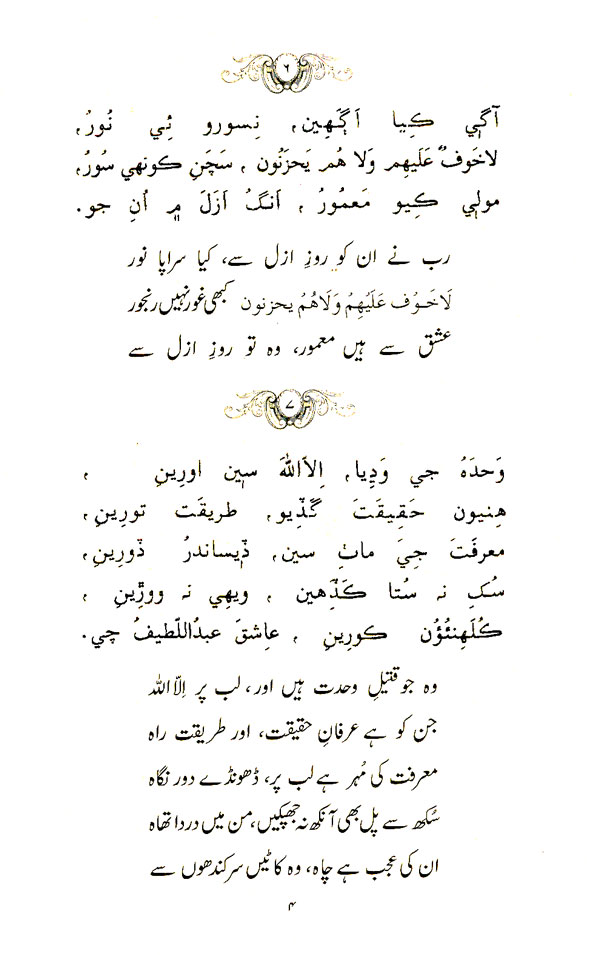 ۶
آڳي ڪِيا اَڳهِين، نِسورو ئِي نُورُ،
لاخَوفٌ عَلَيهِم وَلا هُم يَحزَنُون، سَچَنِ ڪونهي سُورُ،
مولٰي ڪِيو مَعمُورُ، اَنگُ اَزَلَ ۾ اُنِ جو.
رب نے ان کو روزِ ازل سے، کیا سراپا نور
لَاخَوُف عَلَیْهِمُ وَلَاهُمُ یحزنون کبھی غور نہیں رنجور
عشق سے ہیں معمور، وہ تو روزِ ازل سے
۷
وَحدَہُ جي وَڍِيا، اِلاَاللّٰهَ سين اورِينِ،
هِنيون حَقِيقَتَ گَڏِيو، طرِيقَت تورِينِ،
معرفَتَ جِيَ ماٺِ سين، ڏيساندرُ ڏورِينِ،
سُکِ نہ سُتا ڪَڏَهين، ويهِي نہ ووڙِينِ،
ڪُلَهِنئُون ڪورِينِ، عاشِقَ عبدُاللّطيفُ چي.
وہ جو قتیلِ وحدت ہیں اور، لب پر اِلاّ اللہ
جن کو ہے عرفانِ حقیقت، اور طریقت راہ
معرفت کی مُہر ہے لب پر، ڈھونڈے دور نگاہ
سُکھ سے پل بھی آنکھ نہ جھپکیں، من میں درد اتھاہ
ان کی عجب ہے چاہ، وہ کاٹیں سر کندھوں سے
۴